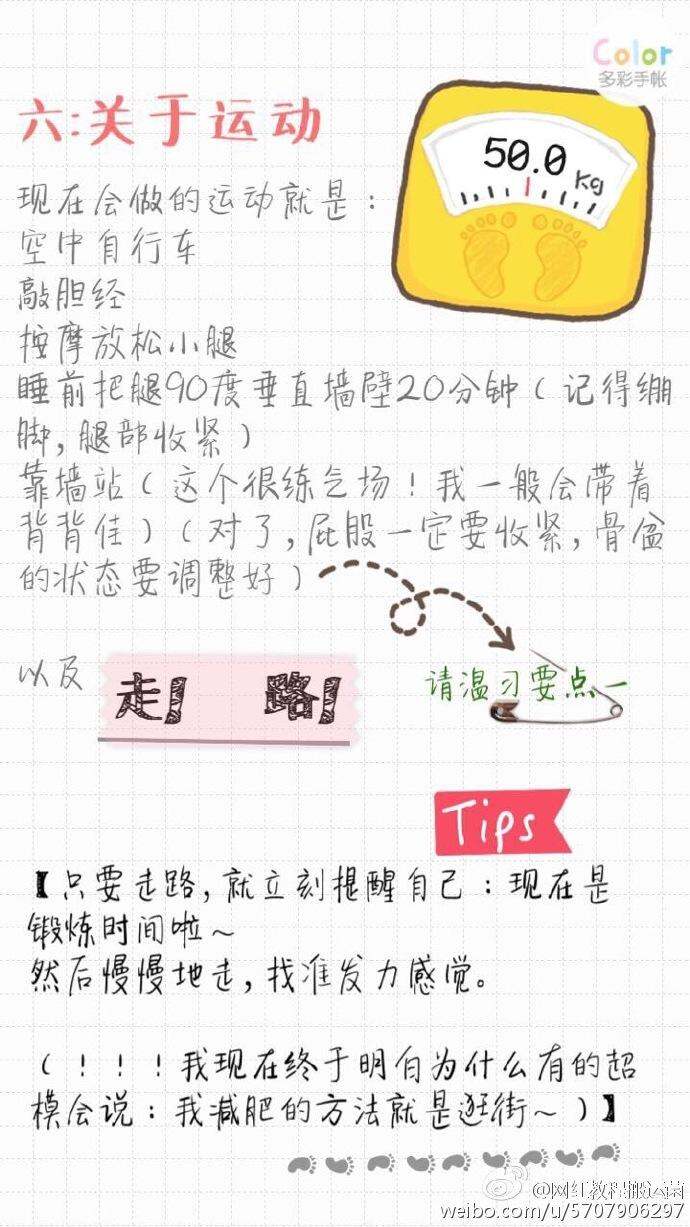 Color
多彩手帐
六:关于运动
50.0 Kg
现在会做的运动就是：
空中自行车
敲胆经
按摩放松小腿
睡前把腿90度垂直墙壁20分钟（记得绷
脚，腿部收紧）
靠墙站（这个很练气场！我一般会带着
背背佳）（对了，屁股一定要收紧，骨盆
的状态要调整好）
以及
走路
请温习要点一
Tips
【只要走路，就立刻提醒自己：现在是
锻炼时间啦~
然后慢慢地走，找准发力感觉。
（！！！我现在终于明白为什么有的超
模会说：我减肥的方法就是逛街~）】
@网红教程搬运菌
weibo.com/u/5707906297